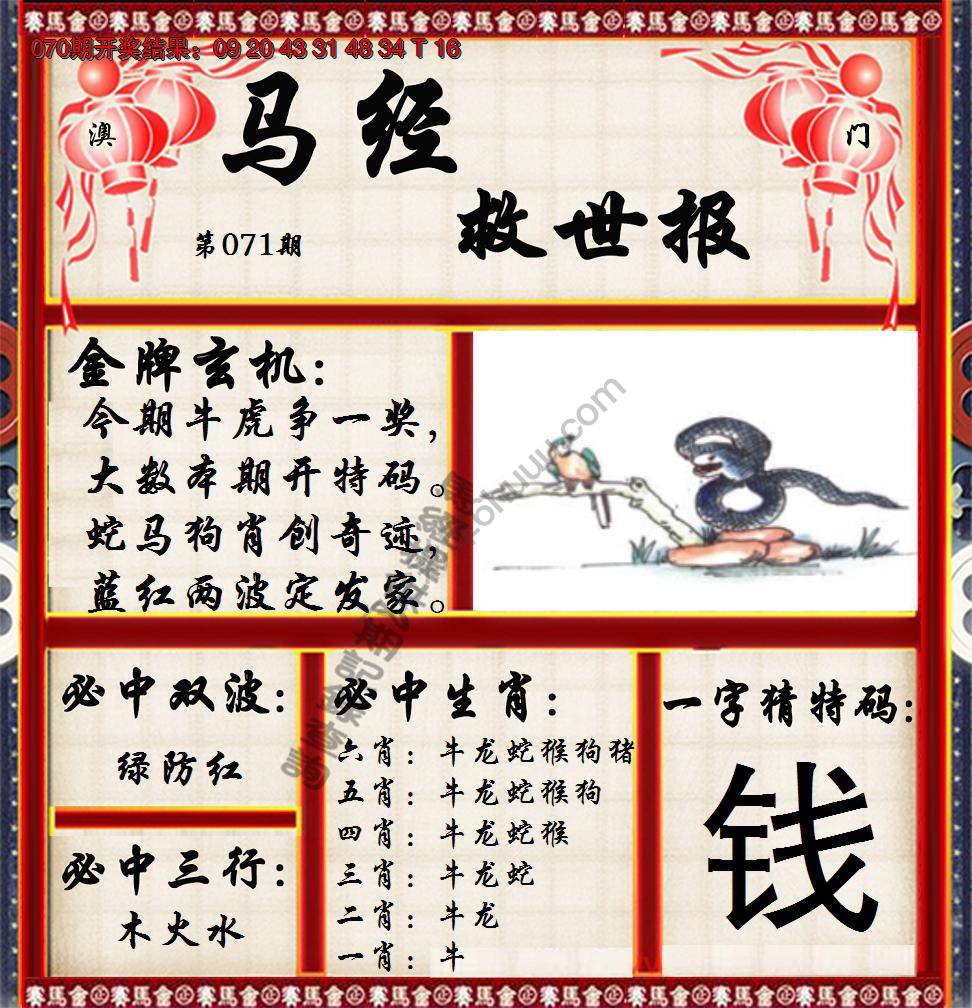 070期开奖结果：09 20 43 31 48 34 T 16
澳
门
马经
救世报
第071期
金牌玄机：
今期牛虎争一奖，
大数本期开特码。
蛇马狗肖创奇迹，
蓝红两波定发家。
必中双波：
绿防红
必中三行：
木火水
必中生肖：
六肖：牛龙蛇猴狗猪
五肖：牛龙蛇猴狗
四肖：牛龙蛇猴
三肖：牛龙蛇
二肖：牛龙
一肖：牛
一字猜特码：
钱